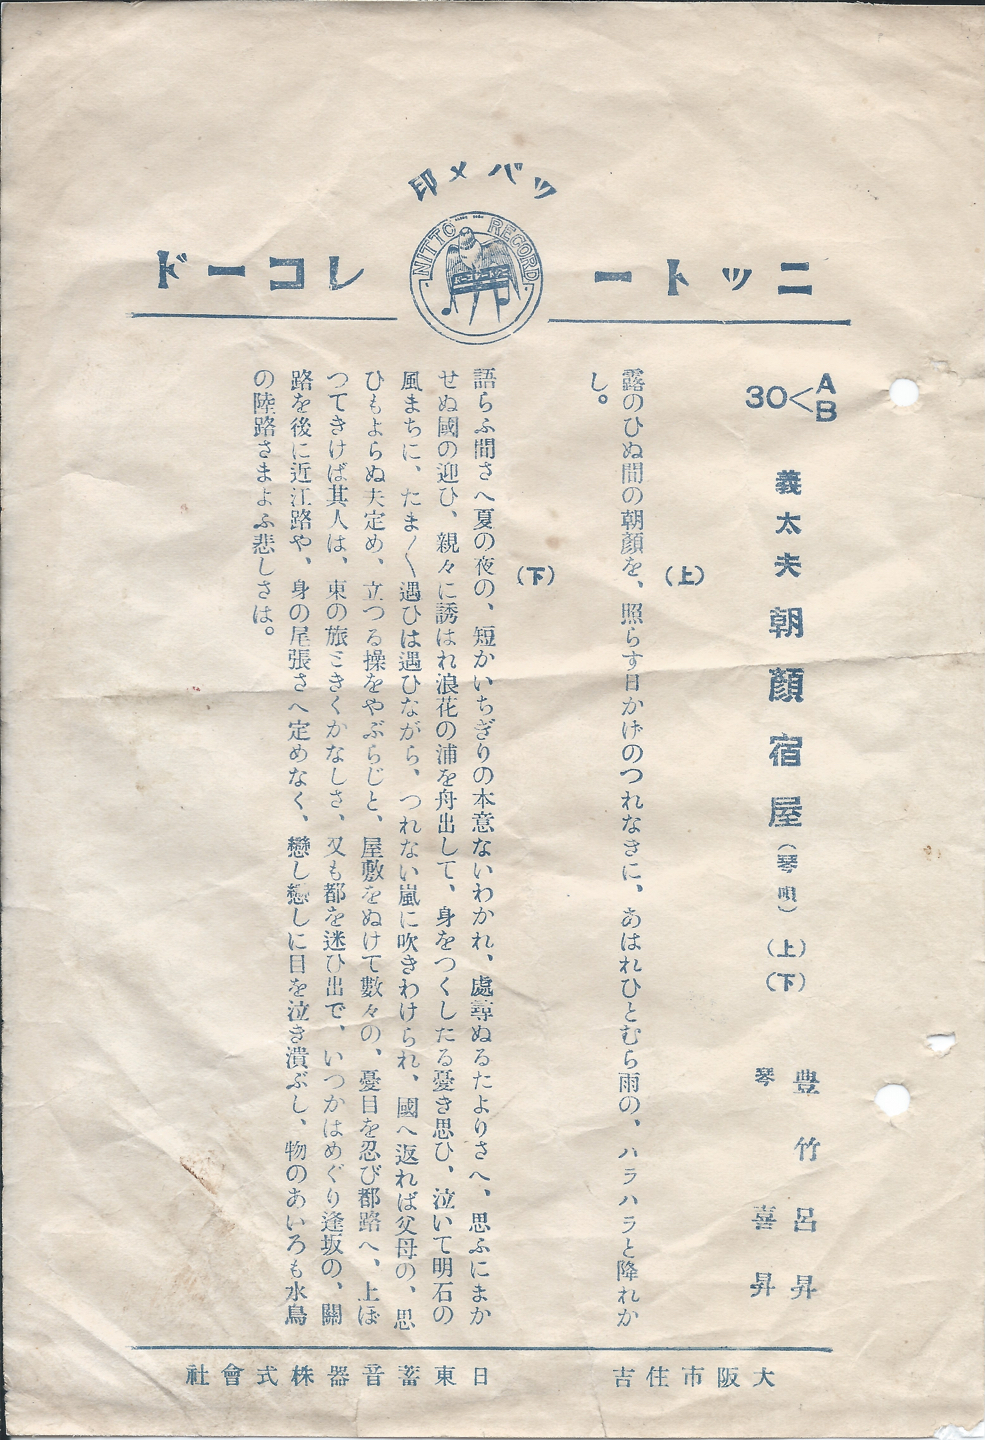 ツバメ印
ニットーレコード
NITTO RECORD
ニットーレコード
30<A B
義太夫 朝顏宿屋(琴唄)(上)(下)
豊竹呂昇
琴 喜昇
(上)
露のひぬ間の朝顏を、照らす日かげのつれなさに、あはれひとむら雨の、ハラハラと降れか
し。
(下)
語らふ間さへ夏の夜の、短かいちぎりの本意ないわかれ、處尋ぬるたよりさへ、思ふにまか
せぬ國の迎ひ、親々に誘はれ浪花の浦を舟出して、身をつくしたる憂き思ひ、泣いて明石の
風まちに、たま〱遇ひは遇ひながら、つれない嵐に吹きわけられ、國へ返れば父母の、思
ひもよらぬ夫定め、立つる操をやぶらじと、屋敷をぬけて數々の、憂目を忍び都路へ、上ぼ
つてきけば其人は、東の旅ときくかなしさ、又も都を迷ひ出で、いつかはめぐり逢坂の、關
路を後に近江路や、身の尾張さへ定めなく、戀し戀しに目を泣き潰ぶし、物のあいろも水鳥
の陸路さまよふ悲しさは。
大阪市住吉 日東蓄音器株式會社